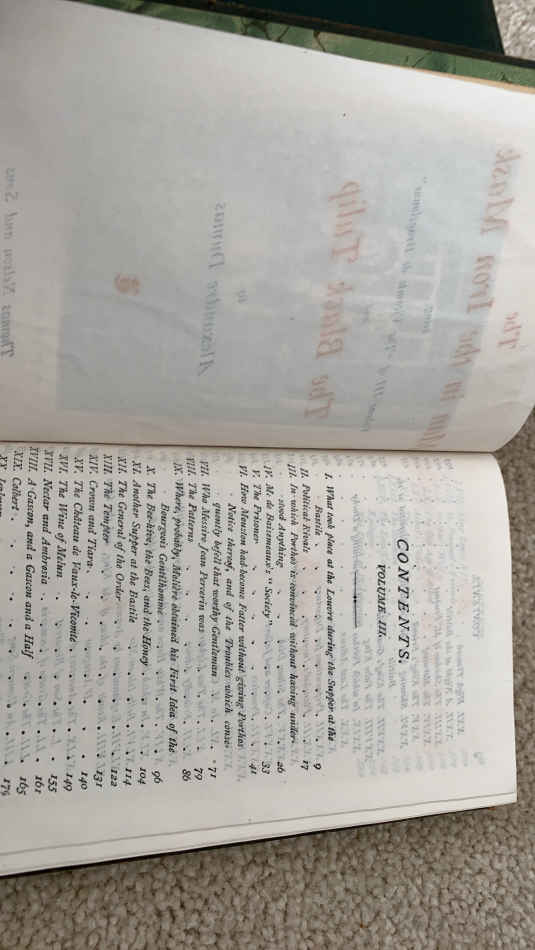 The
Man in the Iron Mask
The Black Tulip
by
Alexandre Dumas
CONTENTS.
VOLUME III.
I. What took place at the Louvre during the Supper at the
Bastile . . . 9
II. Political Rivals . . . 17
III. In which Porthos is convinced without having under-
stood Anything . . . 26
IV. M. de Baisemeaux's "Society" . . . 33
V. The Prisoner . . . 41
VI. How Mouston had become Fatter without giving Porthos
Notice thereof, and of the Troubles which conse-
quently befell that worthy Gentleman . . . 71
VII. Who Messire Jean Percerin was . . . 79
VIII. The Patterns . . . 86
IX. Where, probably, Molière obtained his First Idea of the
Bourgeois Gentilhomme . . . 96
X. The Bee-hive, the Bees, and the Honey . . . 104
XI. Another Supper at the Bastile . . . 114
XII. The General of the Order . . . 122
XIII. The Tempter . . . 131
XIV. Crown and Tiara . . . 140
XV. The Château de Vaux-le-Vicomte . . . 149
XVI. The Wine of Melun . . . 155
XVII. Nectar and Ambrosia . . . 161
XVIII. A Gascon, and a Gascon and a Half . . . 165
XIX. Colbert . . . 175
XX.